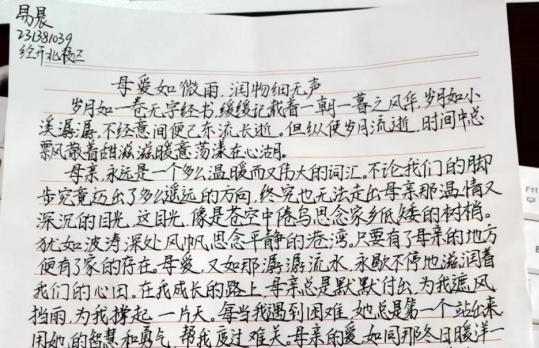 易晨
231381039
母爱如微雨,润物细无声
岁月如一卷无字经书,缓缓记载着一朝一暮之风华,岁月如小
溪潺潺,不经意间便已东流长逝。但纵使岁月流逝,时间中总
飘散着甜滋滋暖意荡漾在心湖。
母亲,永远是一个多么温暖而又伟大的词汇。不论我们的脚
步究竟迈出了多么遥远的方向,终究也无法走出母亲那温情又
深沉的目光,这目光,像是苍空中倦鸟思念家乡低矮的树梢。
犹如波涛深处风帆思念平静的港湾。只要有了母亲的地方
便有了家的存在。母爱,又如那潺潺流水,永歇不停地滋润着
我们的心田。在我成长的路上,母亲总是默默付出,为我遮风
挡雨,为我撑起一片天。每当我遇到困难,她总是第一个站出来
用她的智慧和勇气,帮我度过难关。母亲的爱,如同那冬日暖洋一
F11